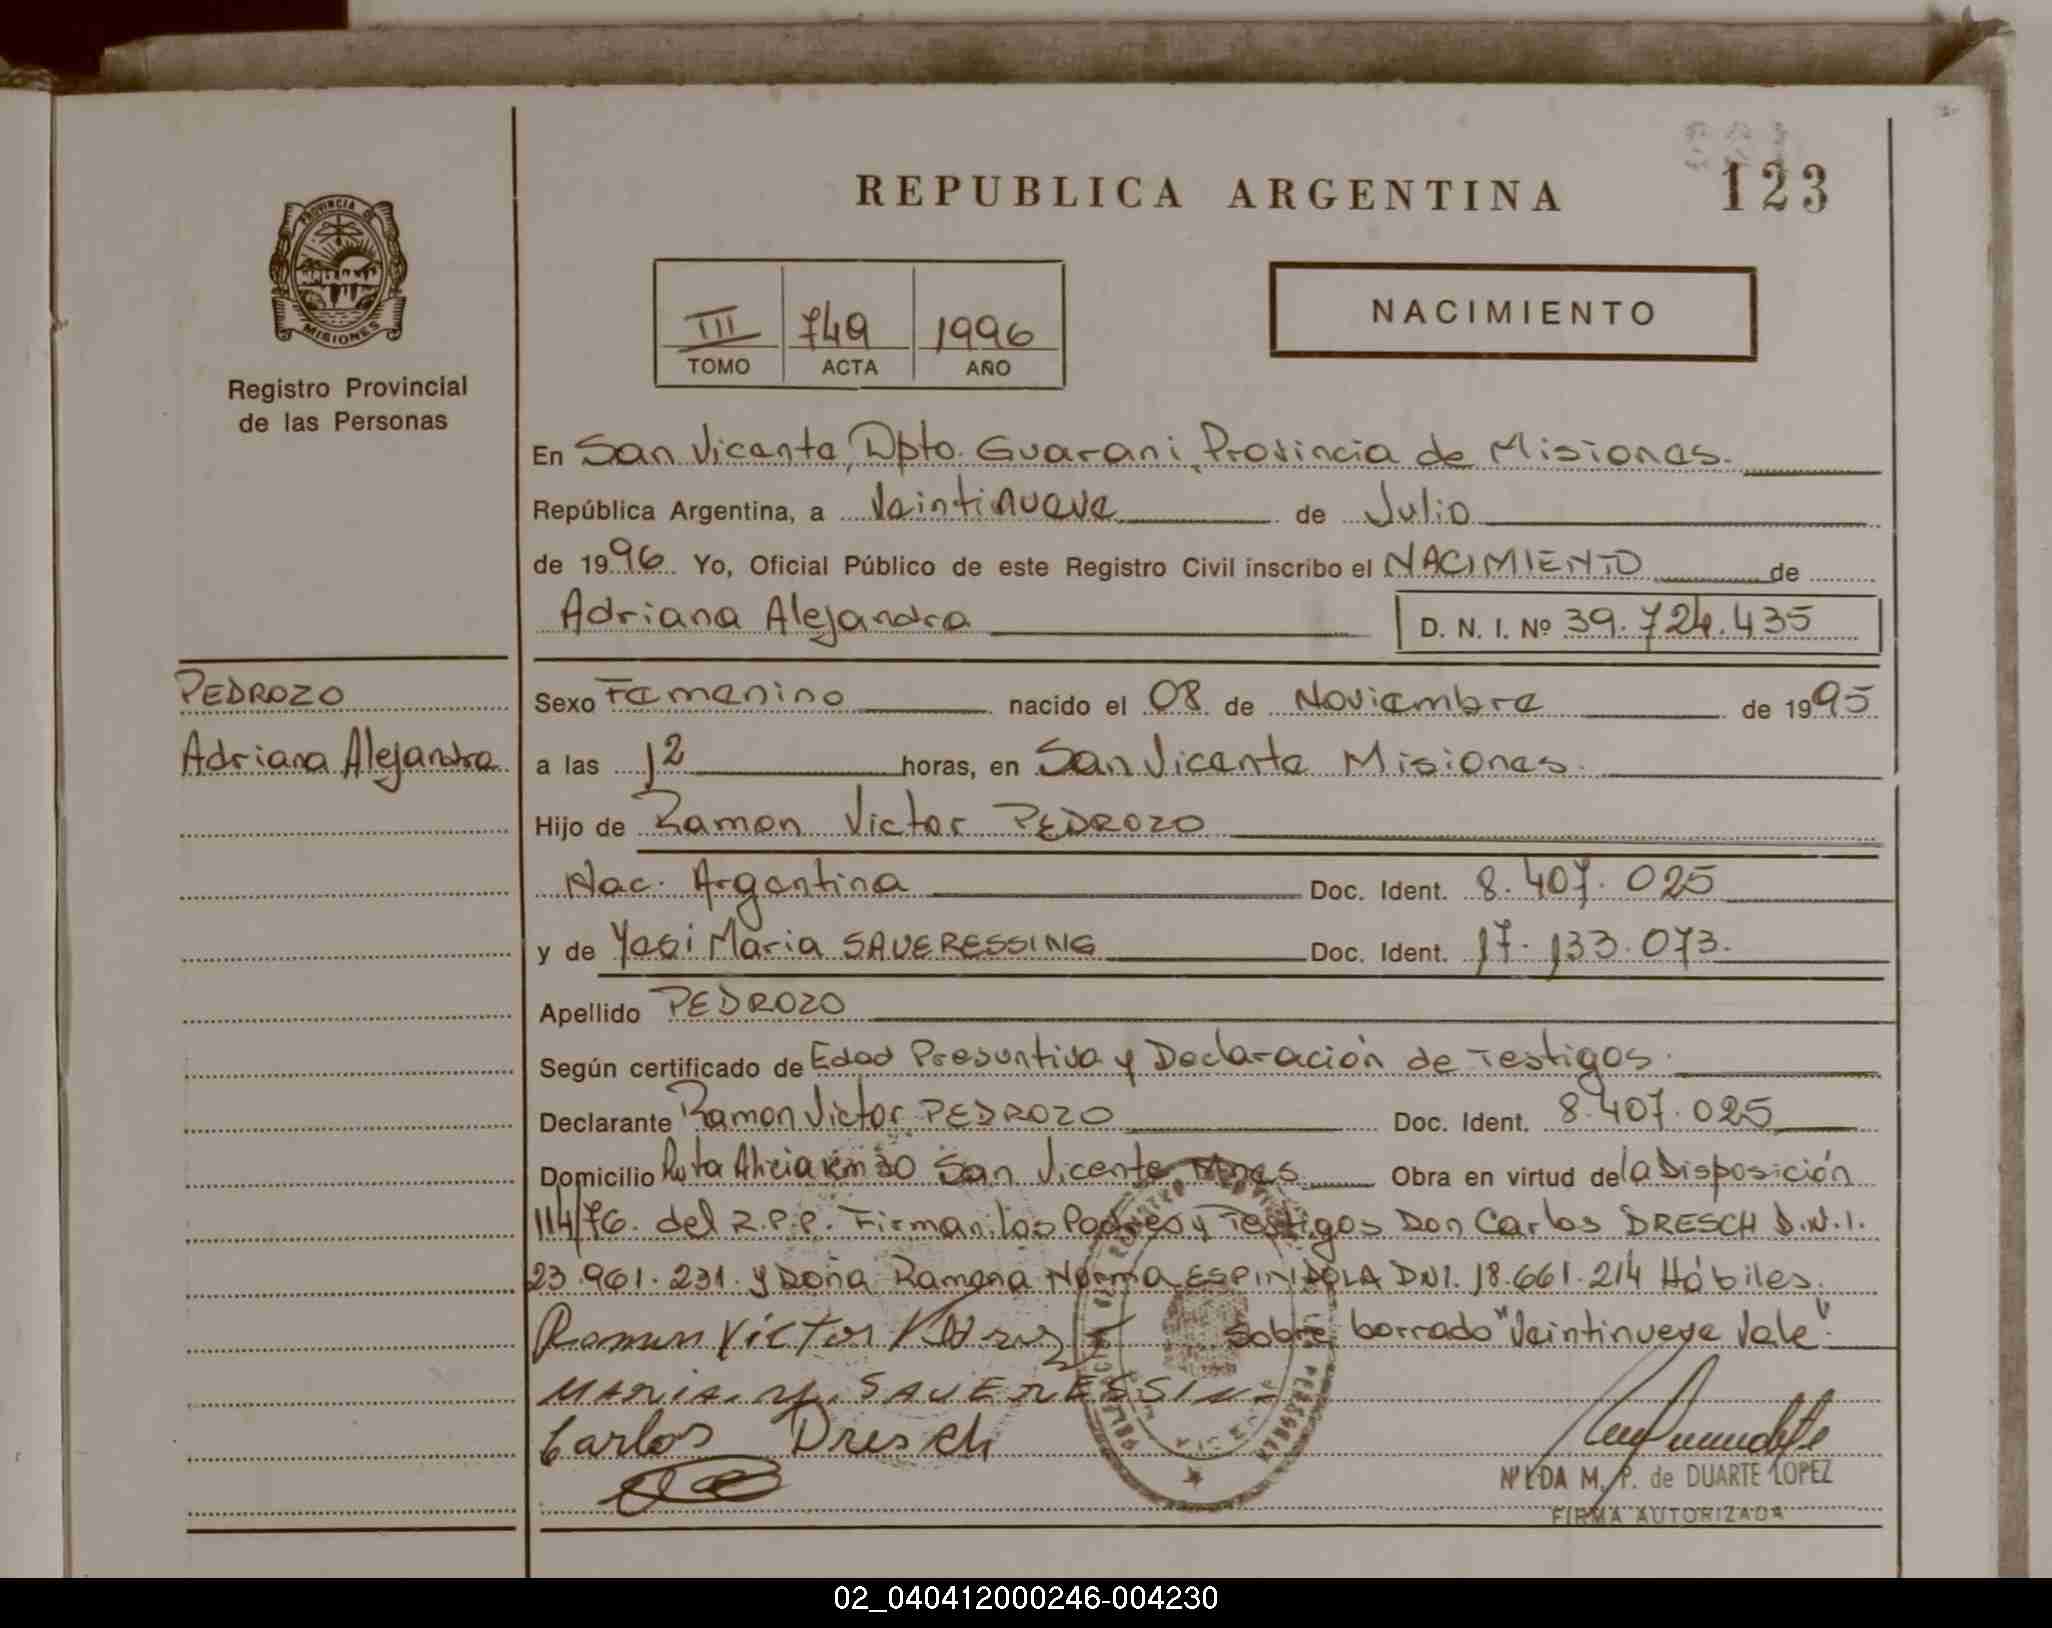 REPUBLICA ARGENTINA
123
PROVINCIA DE
MISIONES
Registro Provincial
de las Personas
III 749 1996
TOMO ACTA AÑO
NACIMIENTO
En San Vicente, Dpto. Guarani, Provincia de Misiones.
República Argentina, a Veintinueve de Julio
de 1996 Yo, Oficial Público de este Registro Civil inscribo el NACIMIENTO de
Adriana Alejandra D. N. I. Nº 39.724.435
PEDROZO
Adriana Alejandra
Sexo Femenino nacido el 08 de Noviembre de 1995
a las 12 horas, en San Vicente Misiones.
Hijo de Ramon Victor PEDROZO
Nac. Argentina Doc. Ident. 8.407.025
y de Maria SAUERESSING Doc. Ident. 17.133.073.
Apellido PEDROZO
Según certificado de Edad Presuntiva y Declaración de Testigos.
Declarante Ramon Victor PEDROZO Doc. Ident. 8.407.025
Domicilio Ruta Alicia Km 30 San Vicente Mnes. Obra en virtud de la Disposición
114/76. del R.P.P. Firman: los Padres y Testigos Don Carlos DRESCH D.N.I.
23.961.231. y Doña Ramona Norma ESPINIDOLA DNI. 18.661.214 Hábiles.
Ramon Victor Sobre borrado "Veintinueve Vale".
MARIA. SAUERESSIN
Carlos Dresch
NILDA M. P. de DUARTE LOPEZ
FIRMA AUTORIZADA
02_040412000246-004230